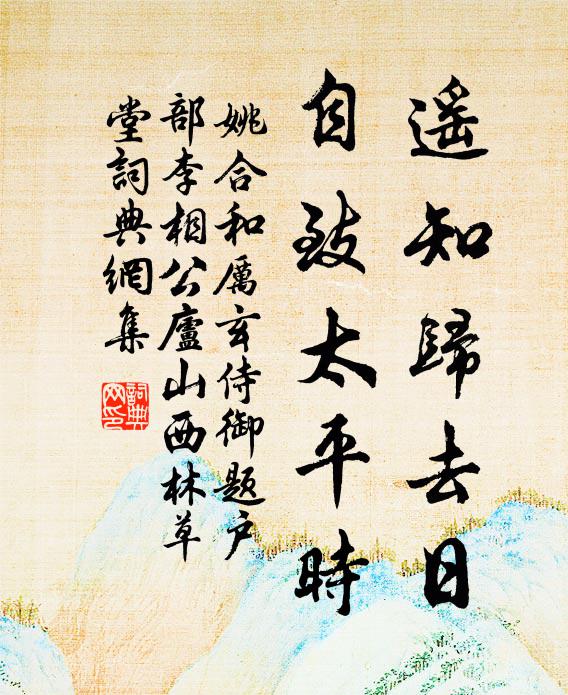 遥知歸去日
自致太平時
姚合和厲玄侍御題户
部李相公廬山西林草
堂詞典網集
詞典網印